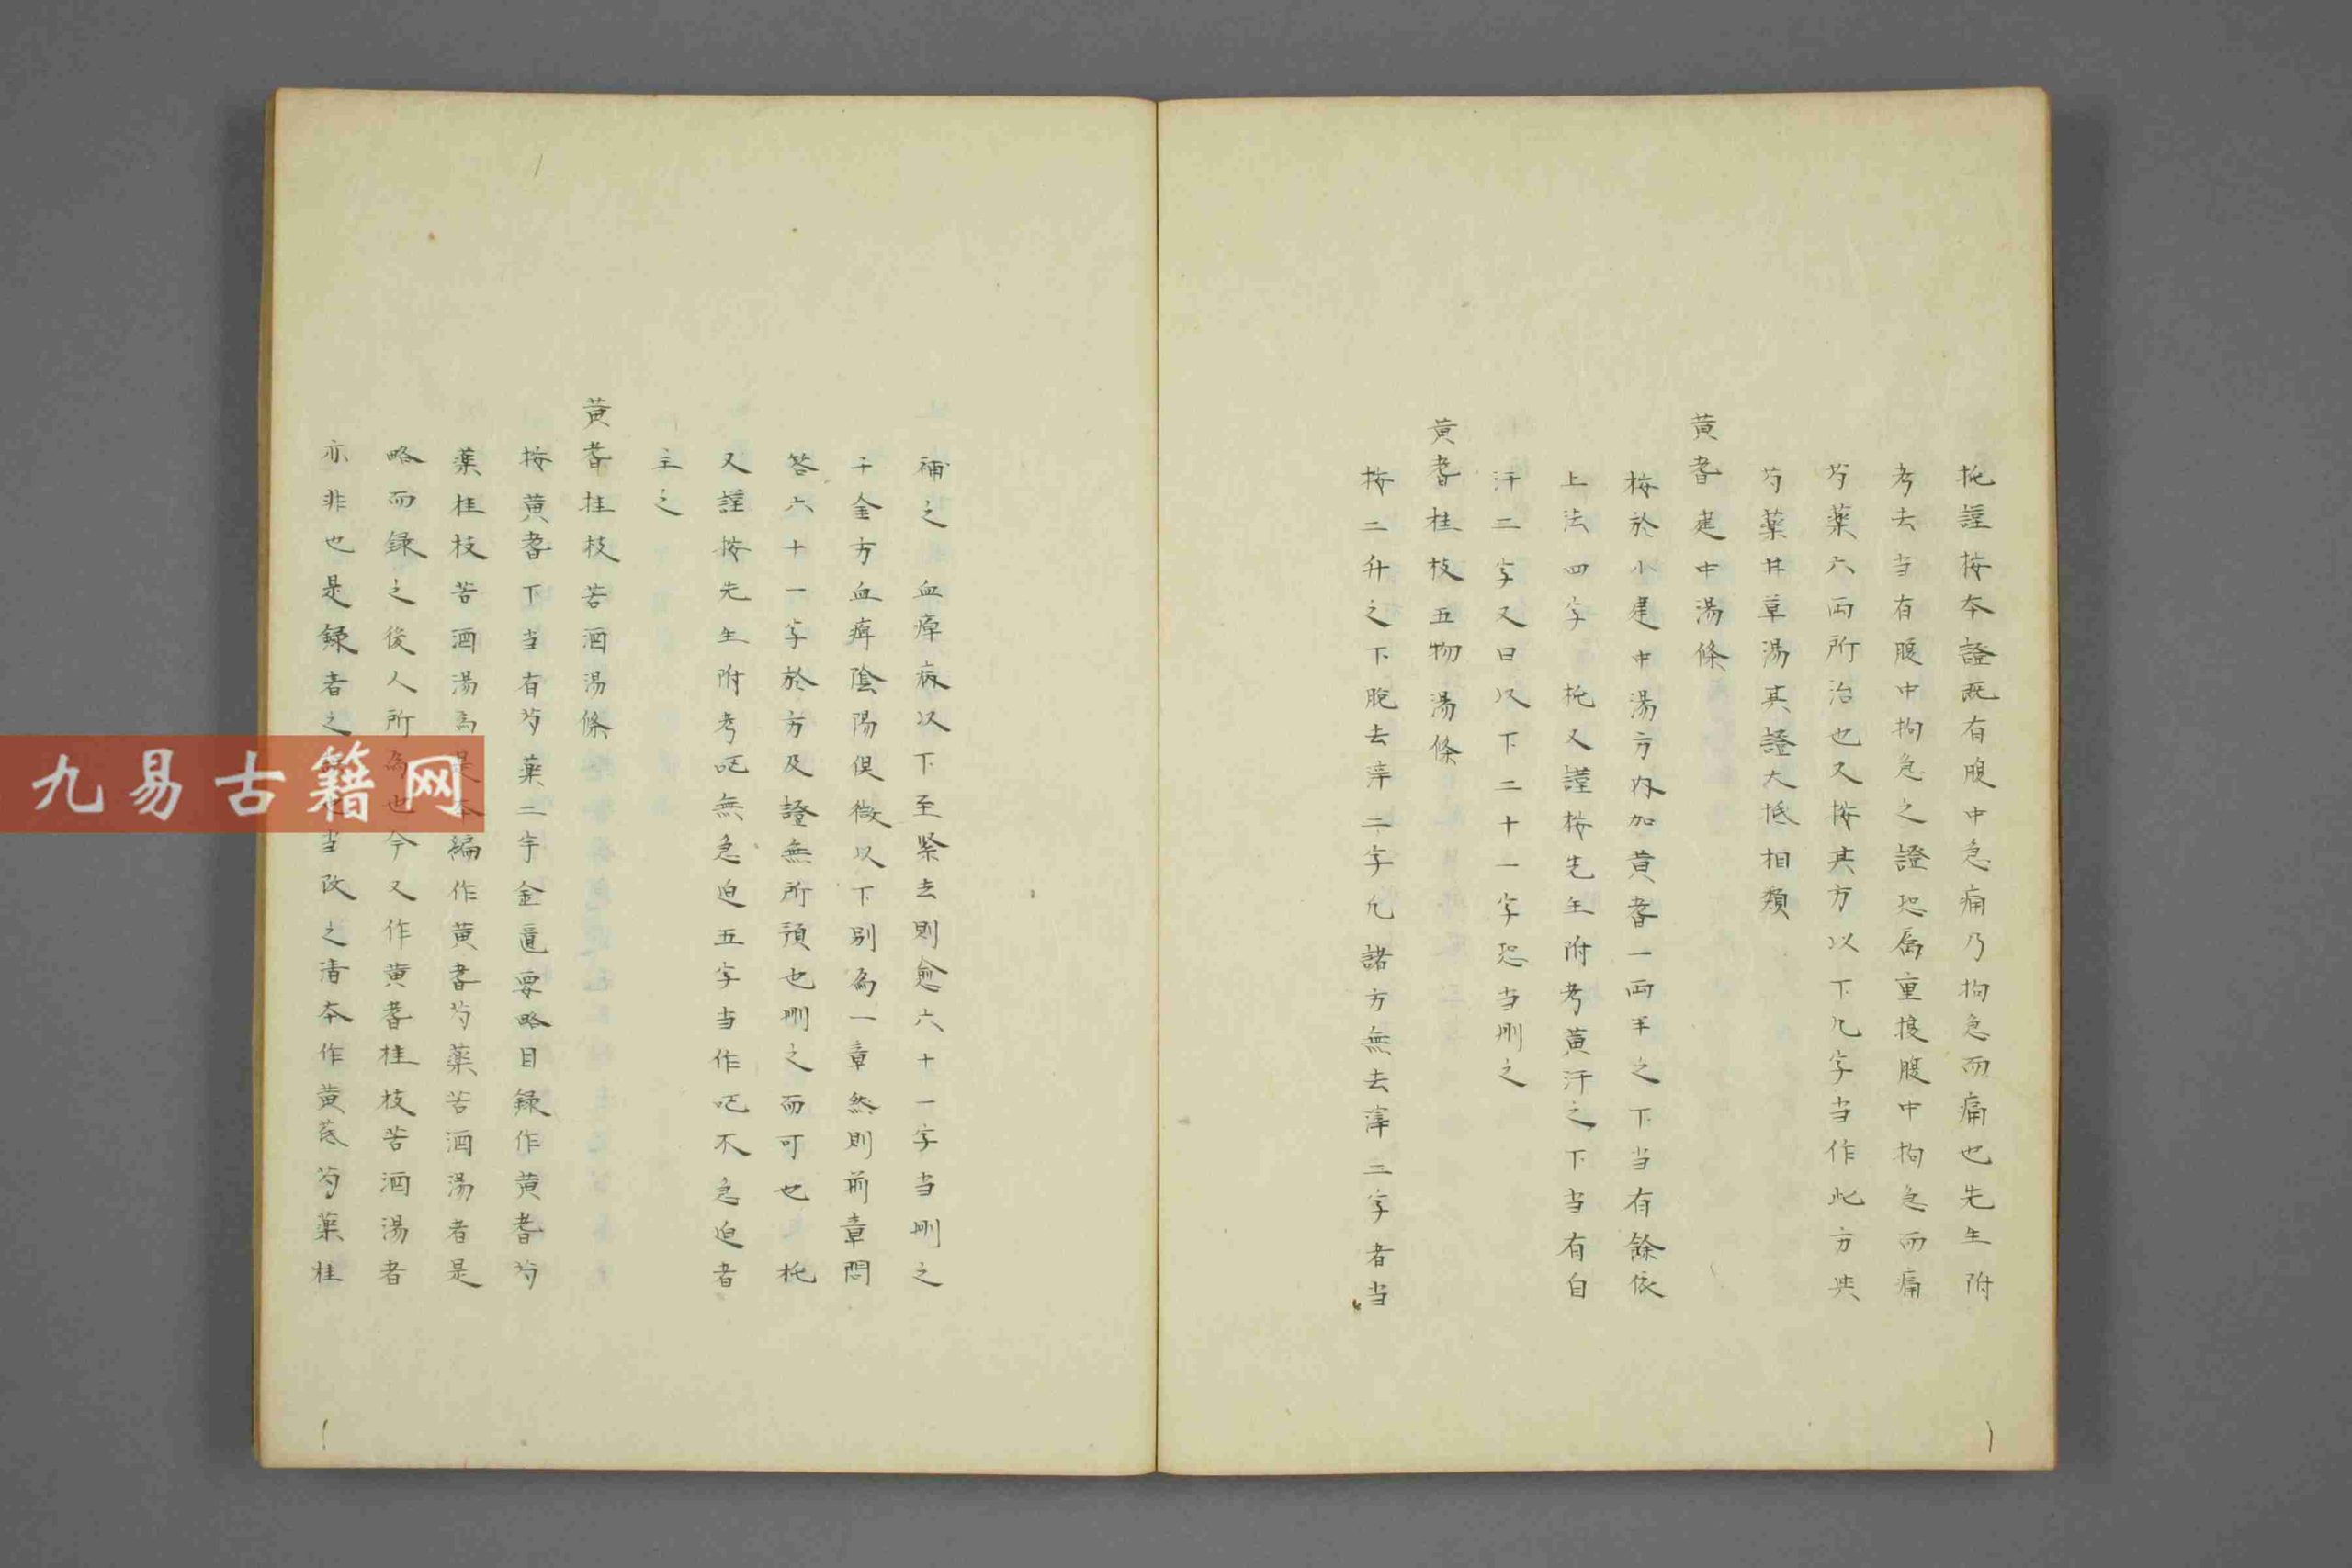 托謹按本證既有腹中急痛乃拘急而痛也先生附
考去当有腹中拘急之證恐属重复腹中拘急而痛
芍藥六両所治也又按其方以下九字当作此方與
芍藥甘草湯其證大抵相類
黄耆建中湯條
按於小建中湯方内加黄耆一両半之下当有餘依
上法四字 托又謹按先生附考黄汗之下当有自
汗二字又曰以下二十一字恐当刪之
黄耆桂枝五物湯條
按二升之下脱去滓二字凡諸方無去滓二字者当
補之 血痺病以下至緊去則愈六十一字当刪之
千金方血痺陰陽俱微以下別為一章然則前章問
答六十一字於方及證無所預也刪之而可也 托
又謹按先生附考呃無急迫五字当作呃不急迫者
主之
黄耆桂枝苦酒湯條
按黄耆下当有芍藥二字金匱要略目録作黄耆芍
藥桂枝苦酒湯為是本編作黄耆芍藥苦酒湯者是
略而録之後人所為也今又作黄耆桂枝苦酒湯者
亦非也是録者之也当改之清本作黄芪芍藥桂
九易古籍网